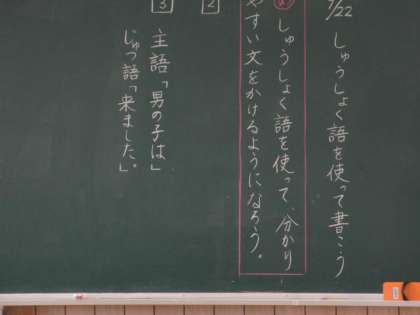 7/22 しゅうしょく語を使って書こう
め しゅうしょく語を使って、分かり
やすい文をかけるようになろう。
2
3 主語「男の子は」
じゅつ語「来ました。